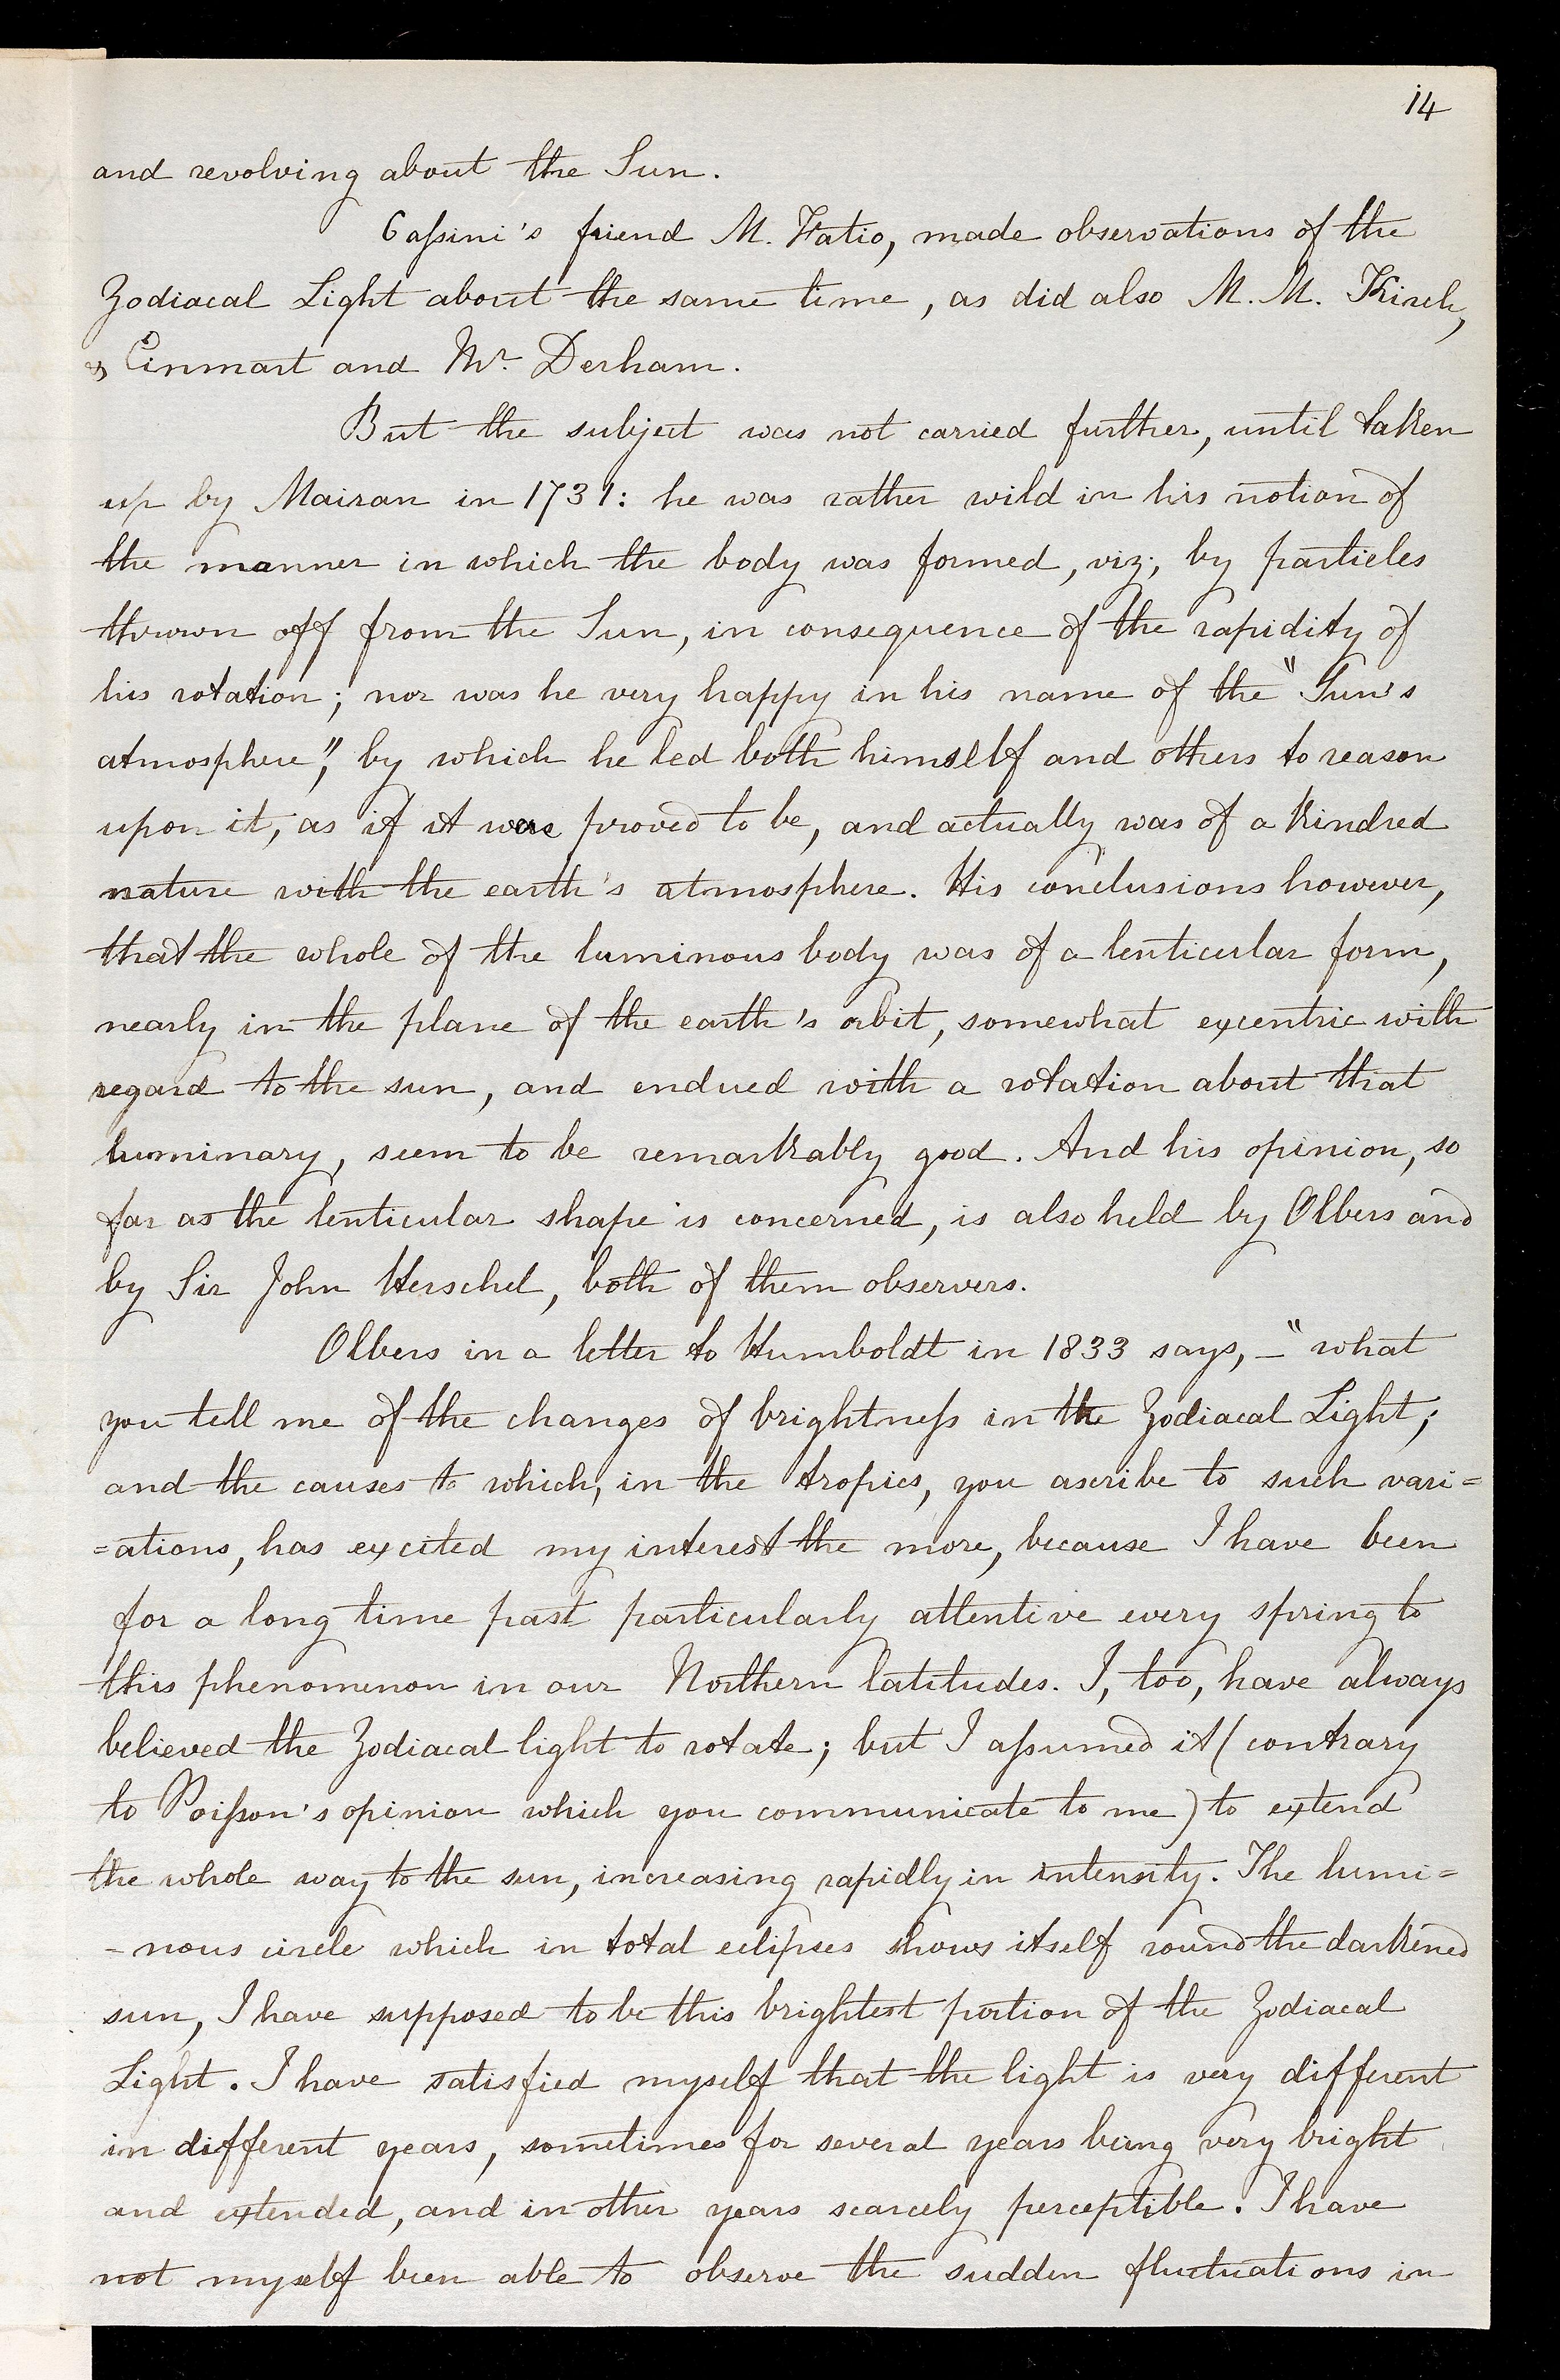 14
and revolving about the Sun.
Caſsini's friend M. Fatio, made observations of the
Zodiacal Light about the same time, as did also M. M. Kirch,
& Einmart and Mr. Derham.
But the subject was not carried further, until taken
up by Mairan in 1731: he was rather wild in his notion of
the manner in which the body was formed, viz; by particles
thrown off from the Sun, in consequence of the rapidity of
his rotation; nor was he very happy in his name of the "Sun's
atmosphere", by which he led both himself and others to reason
upon it, as if it were proved to be, and actually was of a kindred
nature with the earth's atmosphere. His conclusions however,
that the whole of the luminous body was of a lenticular form,
nearly in the plane of the earth's orbit, somewhat excentric with
regard to the sun, and endued with a rotation about that
luminary, seem to be remarkably good. And his opinion, so
far as the lenticular shape is concerned, is also held by Olbers and
by Sir John Herschel, both of them observers.
Olbers in a letter to Humboldt in 1833 says, – "what
you tell me of the changes of brightneſs in the Zodiacal Light;
and the causes to which, in the tropics, you ascribe to such vari=
=ations, has excited my interest the more, because I have been
for a long time past particularly attentive every spring to
this phenomenon in our Northern latitudes. I, too, have always
believed the Zodiacal light to rotate; but I aſsumed it (contrary
to Poiſson's opinion which you communicate to me) to extend
the whole way to the sun, increasing rapidly in intensity. The lumi=
=nous circle which in total eclipses shows itself round the darkened
sun, I have supposed to be this brightest portion of the Zodiacal
Light. I have satisfied myself that the light is very different
in different years, sometimes for several years being very bright
and extended, and in other years scarcely perceptible. I have
not myself been able to observe the sudden fluctuations in